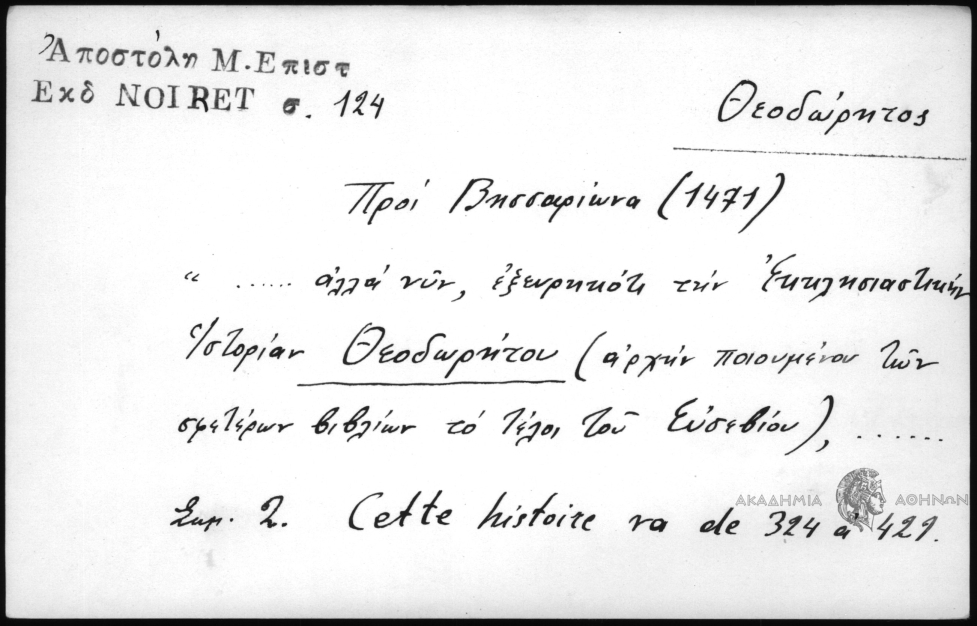 Ἀποστόλη Μ. Επιστ
Εκδ NOIRET σ. 124
Θεοδώρητος
Πρὸς Βησσαρίωνα (1471)
“ ...... ἀλλά νῦν, ἐξευρηκότι τήν Ἐκκλησιαστικήν
Ἱστορίαν Θεοδωρήτου (ἀρχήν ποιουμένου τῶν
σφετέρων βιβλίων τό τέλος τοῦ Εὐσεβίου), .......
Σημ. 2. Cette histoire va de 324 à 429.
ΑΚΑΔΗΜΙΑ ΑΘΗΝΩΝ